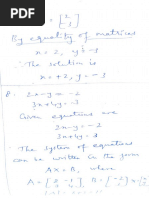 = [2
-3]
By equality of matrices
x = 2, y = -3
∴ The solution is
x = +2, y = -3
8. 2x - y = -2
3x + 4y = 3
Given equations are
2x - y = -2
3x + 4y = 3
∴ The system of equations
can be written in the form
AX = B, where